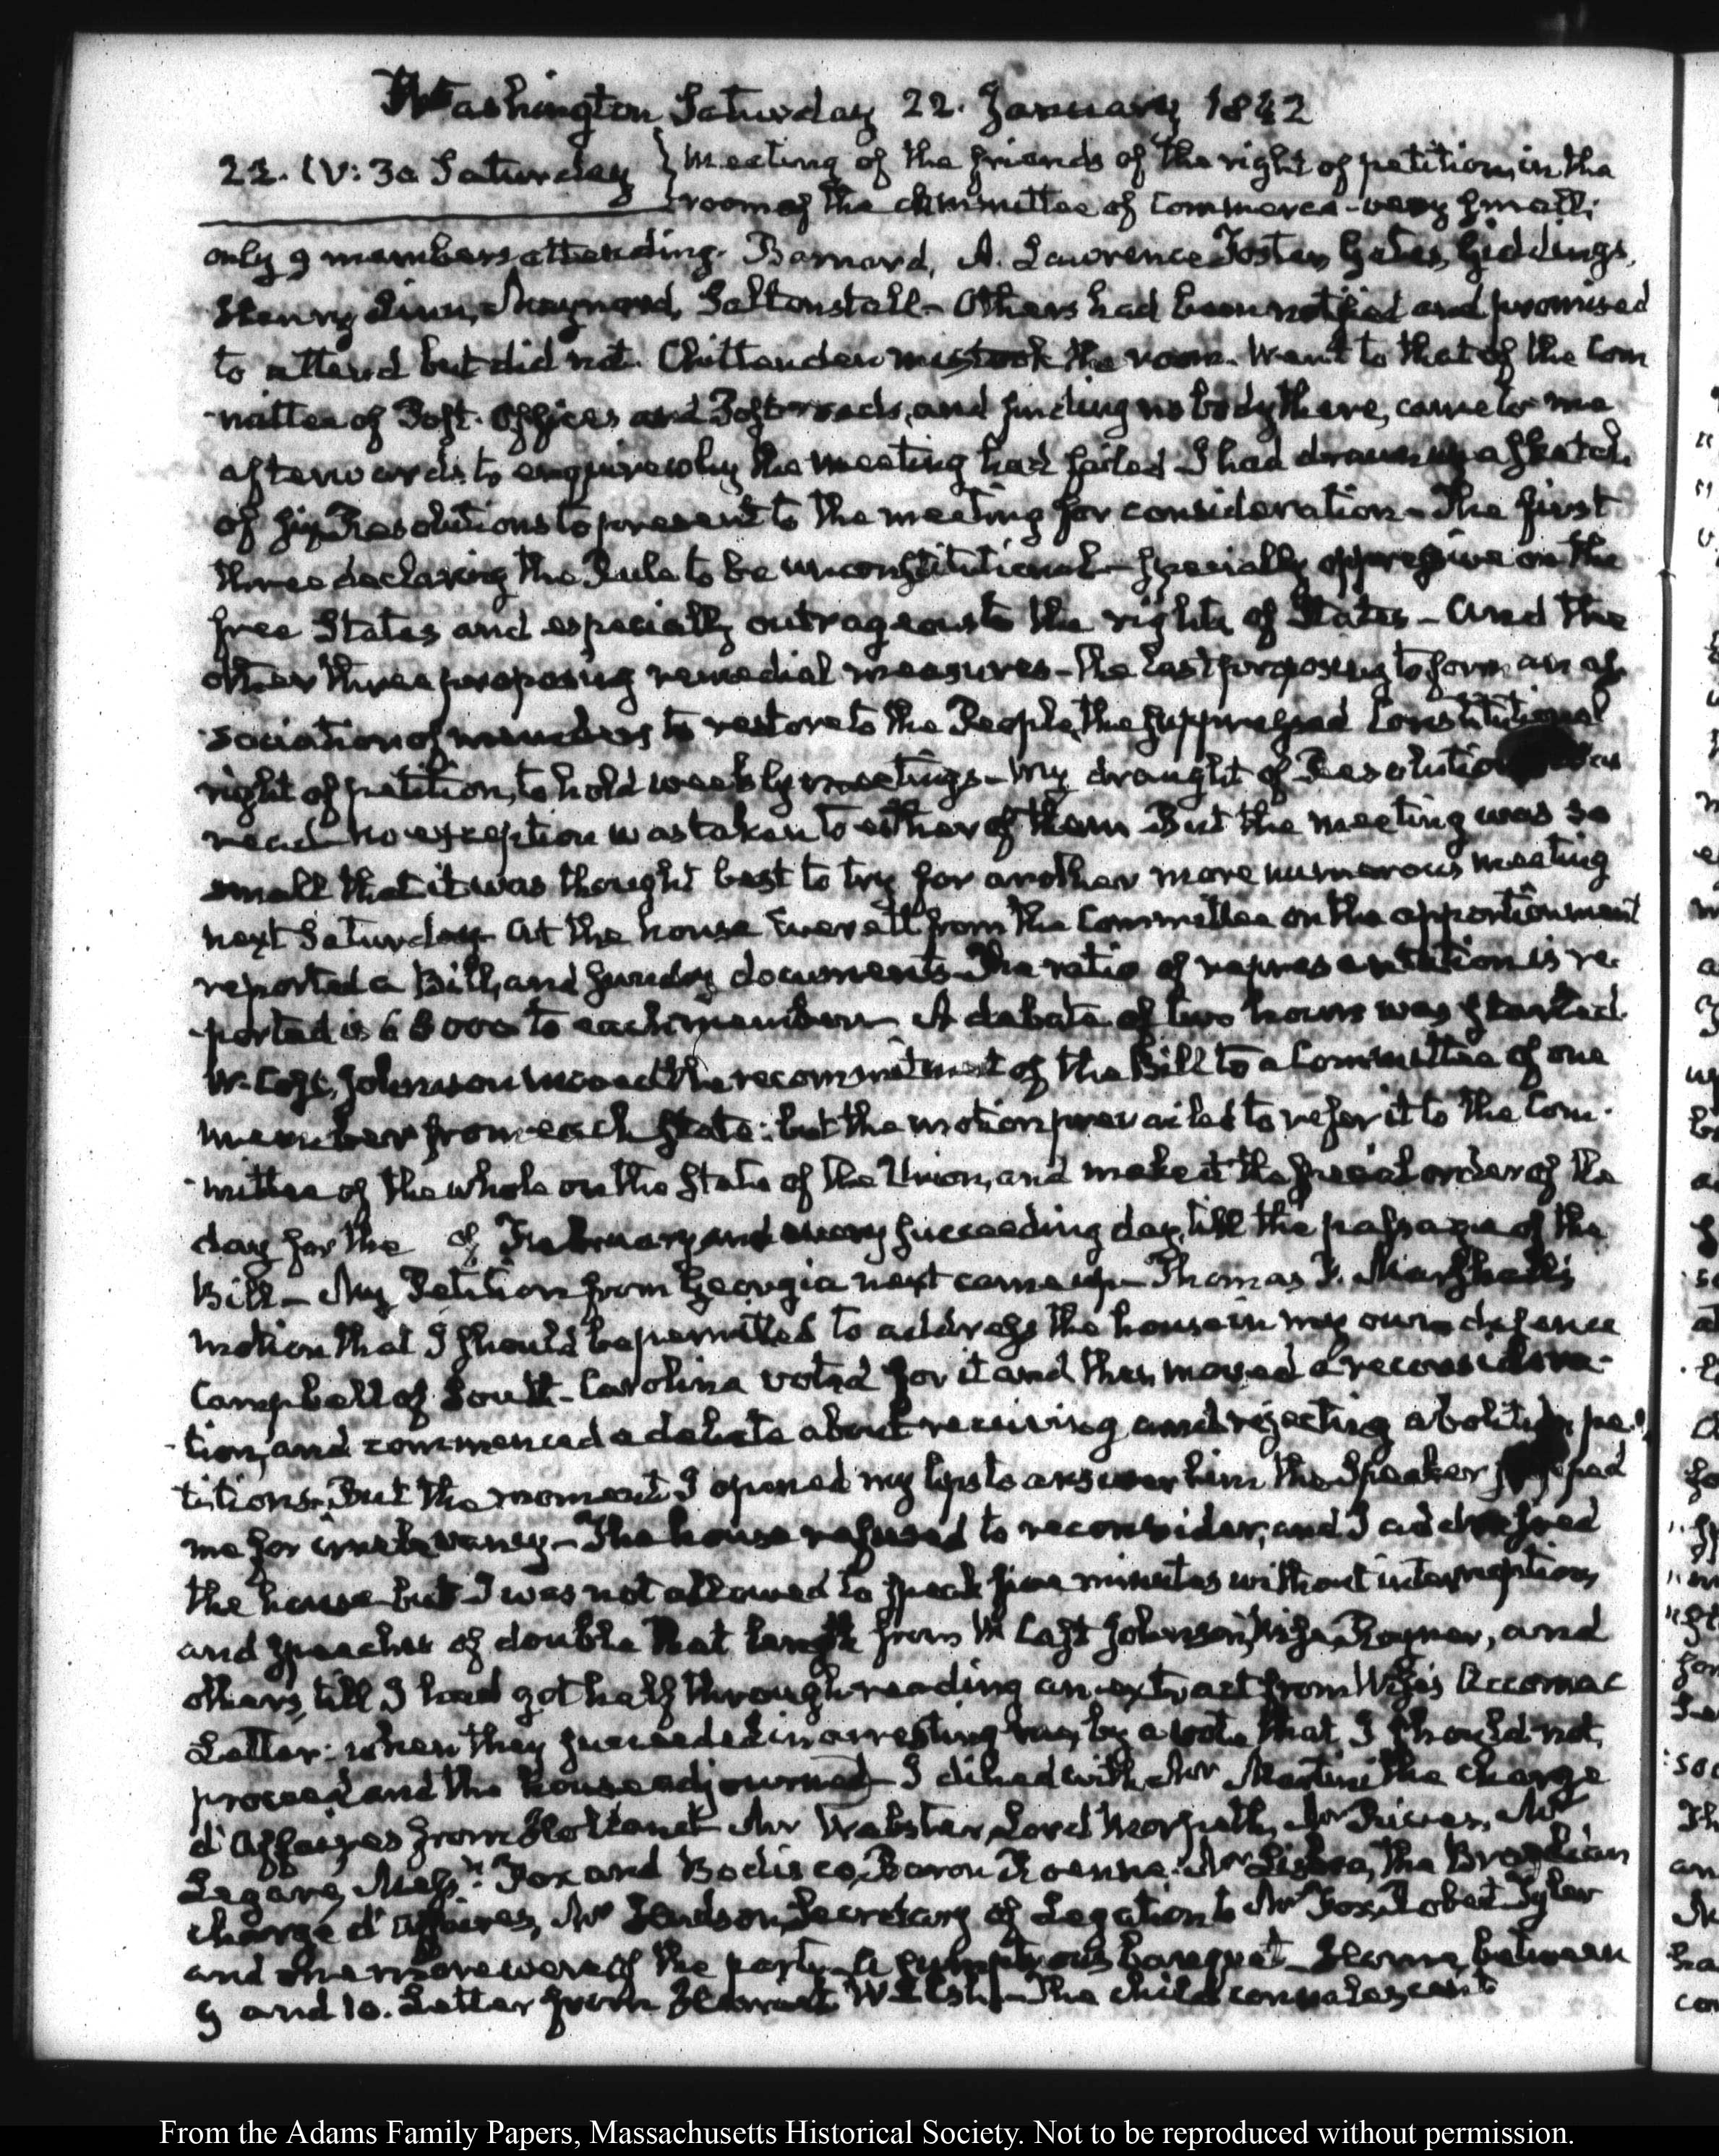 Washington Saturday 22. January 1842
22. IV: 30. Saturday } Meeting of the friends of the right of petition, in the
room of the committee of Commerce – very small;
only 9 members attending. Barnard, A. Lawrence Foster, Gates, Giddings,
Henry, Linn, Maynard, Saltonstall – Others had been notified and promised
to attend but did not. Chittenden mistook the room. Went to that of the Com
-mittee of Post-Offices and Post-roads, and finding nobody there, came to me
afterwards to enquire why the meeting had failed – I had drawn up a sketch
of six Resolutions to present to the meeting for consideration – The first
three declaring the Rule to be unconstitutional – specially oppressive on the
free States and especially outrageous to the rights of States – And the
other three proposing remedial measures – the last proposing to form an as
sociation of members to restore to the People, the suppressed Constitutional
right of petition, to hold weekly meetings – My draught of Resolutions was
read – no exception was taken to either of them But the meeting was so
small that it was thought best to try for another more numerous meeting
next Saturday – At the house Everett from the Committee on the apportionment
reported a Bill, and sundry documents – The ratio of representation is re-
-ported is 68000 to each member. A debate of two hours was started
W. Cost, Johnson moved the recommitment of the Bill to a Committee of one
member from each State: but the motion prevailed to refer it to the Com-
-mittee of the whole on the State of the Union, and make it the special order of the
day for the of February and every succeeding day, till the passage of the
Bill – My Petition from Georgia next came up – Thomas F. Marshall's
motion that I should be permitted to address the house in my own defence
Campbell of South-Carolina voted for it and then moved a reconsidera-
-tion, and commenced a debate about receiving and rejecting abolition pe-
titions. But the moment I opened my lips to answer him the Speaker stopped
me for irrelevancy – The house refused to reconsider, and I addressed
the house but I was not allowed to speak five minutes without interruption,
and speeches of double that length from W Cost Johnson, Wise, Rayner, and
others, till I had got half through reading an extract from Wise's Accomac
Letter: when they succeeded in arresting me, by a vote that I should not
proceed and the house adjourned – I dined with Mr Martini the charge
d'Affaires from Holland Mr Webster, Lord Morpeth, Mr Rives, Mr
Legare, Messrs. Fox and Bodisco, Baron Roenne, Mr Lisboa, the Brazilian
charge d'Affaires, Mr Secretary of Legation to Mr Fox, Robert Tyler
and one more were of the party – A sumptuous banquet – Home, between
9 and 10. Letter from Harriet Welsh – The child convalescent
From the Adams Family Papers, Massachusetts Historical Society. Not to be reproduced without permission.